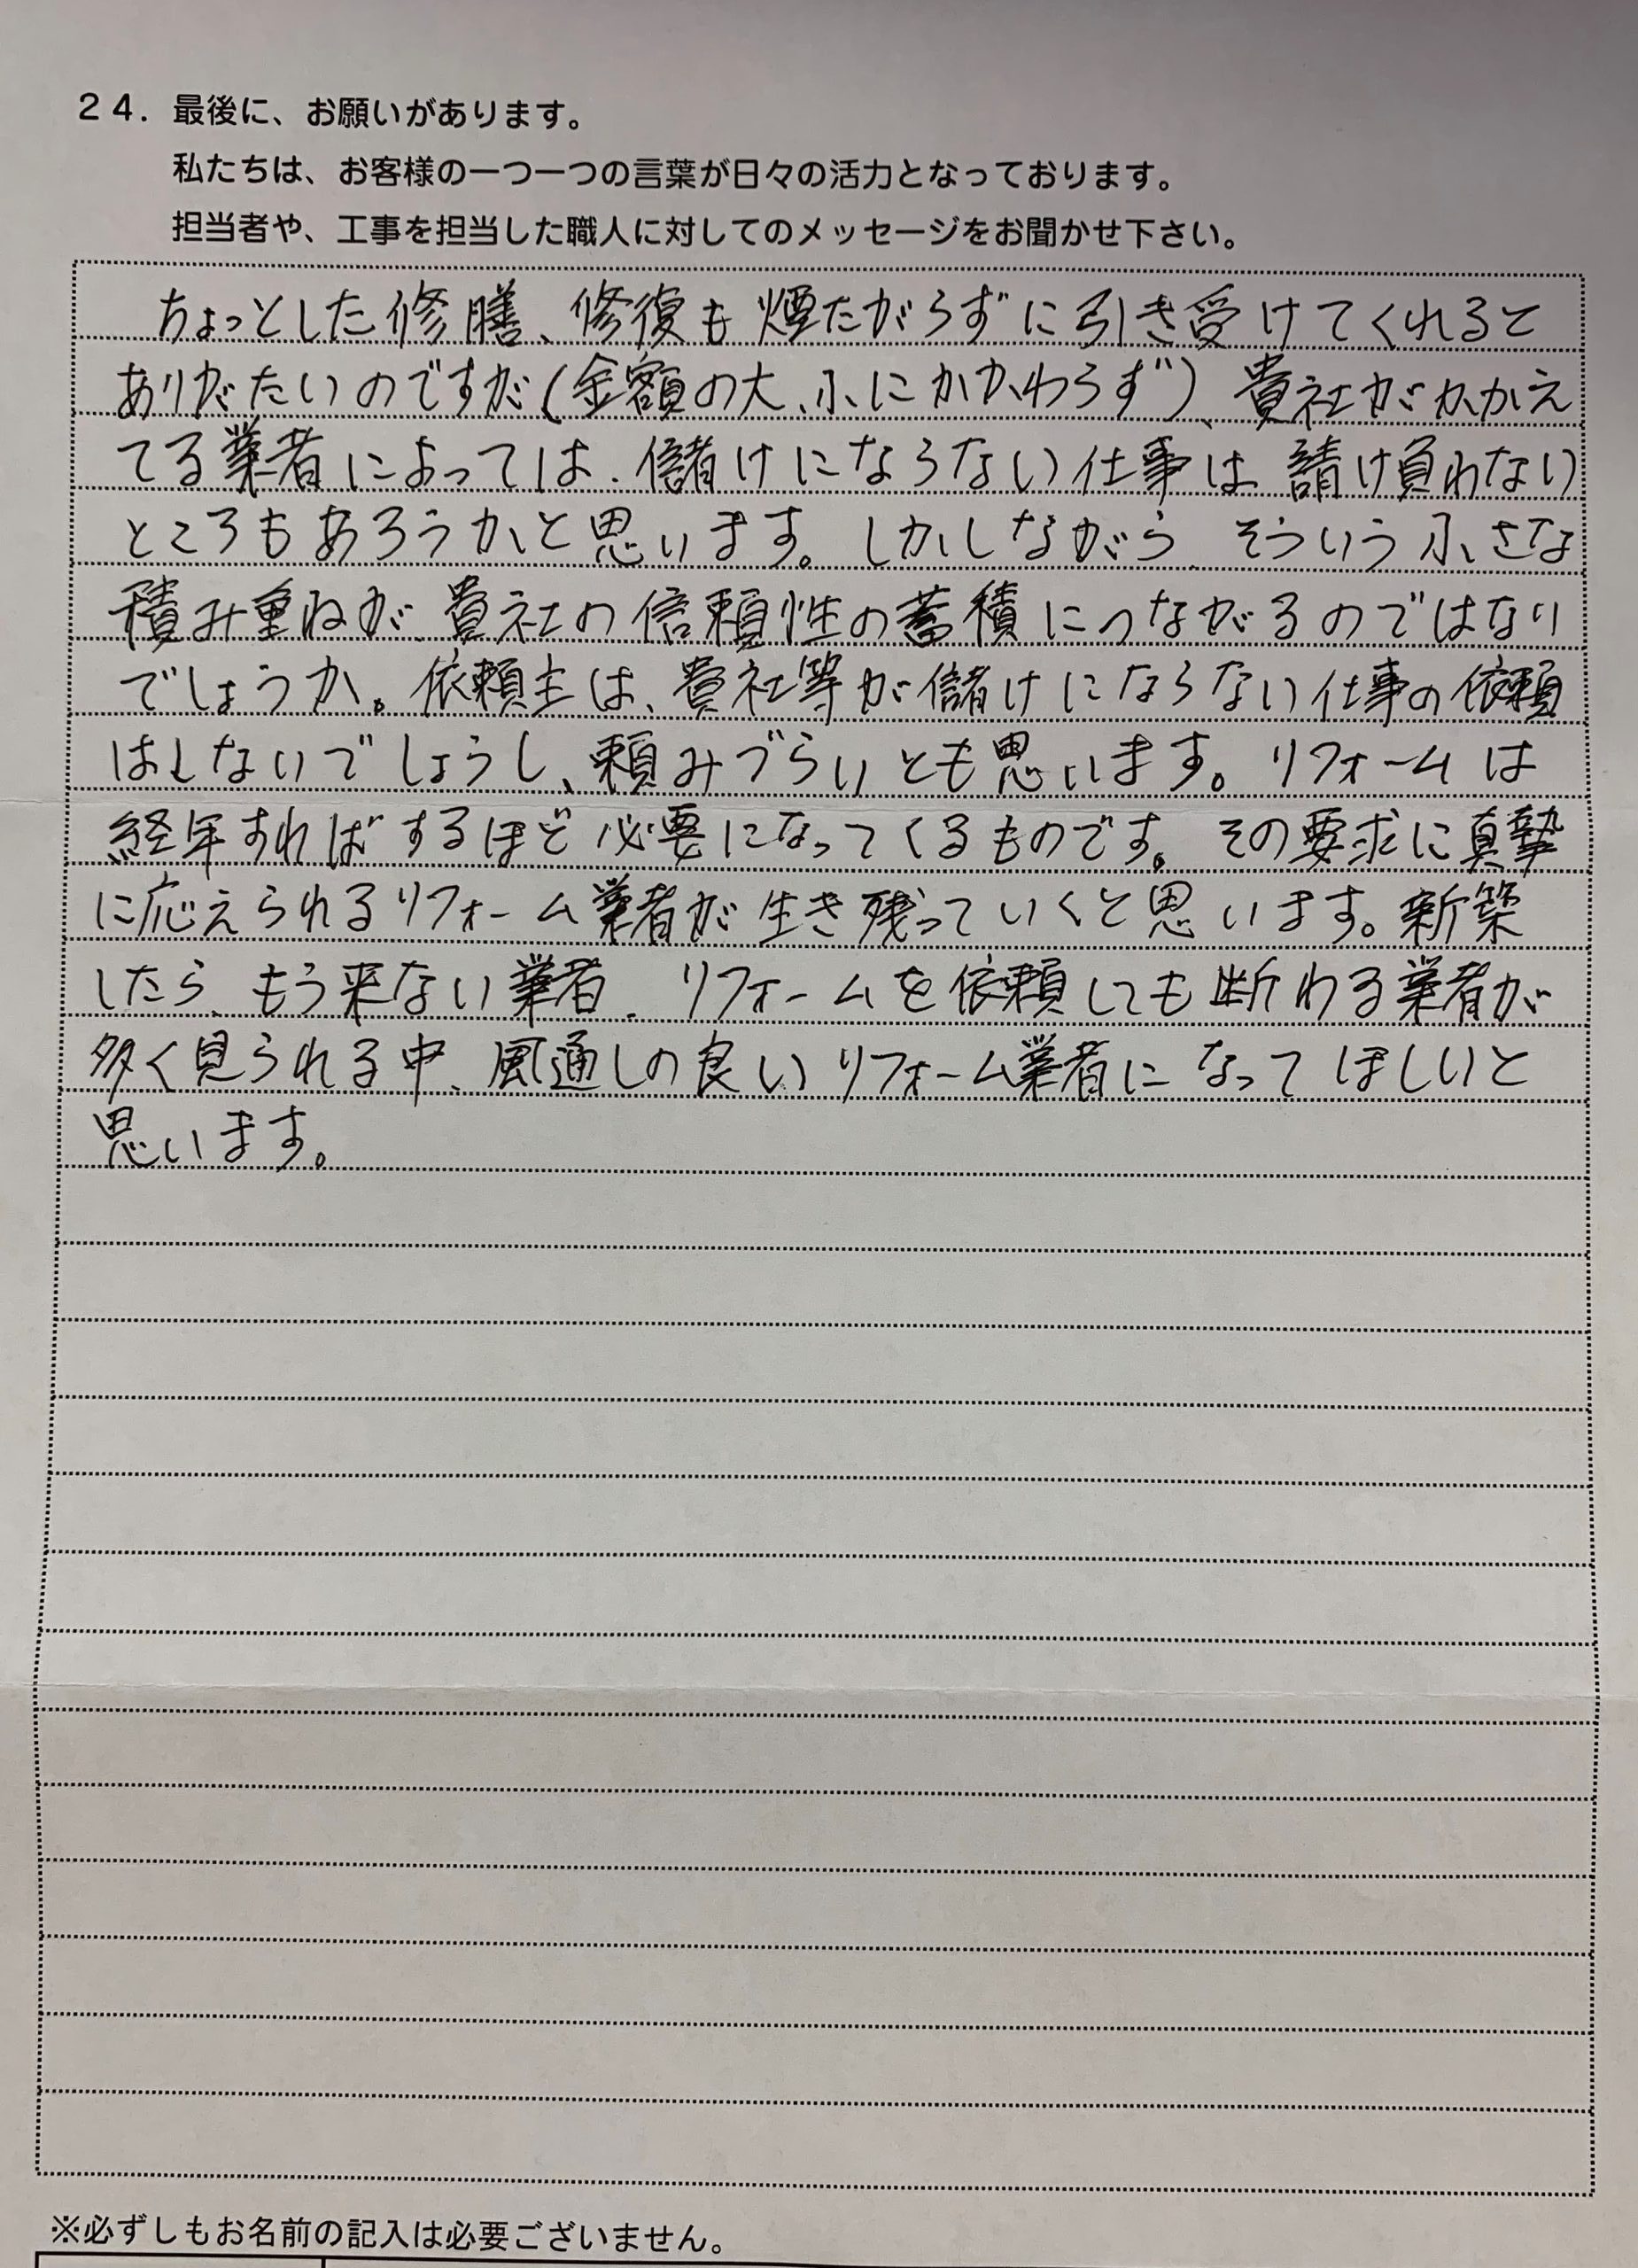 24．最後に、お願いがあります。
私たちは、お客様の一つ一つの言葉が日々の活力となっております。
担当者や、工事を担当した職人に対してのメッセージをお聞かせ下さい。
ちょっとした修膳、修復も煙たがらずに引き受けてくれると
ありがたいのですが(金額の大、小にかかわらず)、貴社がかかえ
てる業者によっては、儲けにならない仕事は、請け負わない
ところもあろうかと思います。しかしながら、そういう小さな
積み重ねが、貴社の信頼性の蓄積につながるのではない
でしょうか。依頼主は、貴社等が儲けにならない仕事の依頼
はしないでしょうし、頼みづらいとも思います。リフォームは
経年すればするほど必要になってくるものです。その要求に真摯
に応えられるリフォーム業者が生き残っていくと思います。新築
したら、もう来ない業者、リフォームを依頼しても断わる業者が
多く見られる中、風通しの良いリフォーム業者になってほしいと
思います。
※必ずしもお名前の記入は必要ございません。